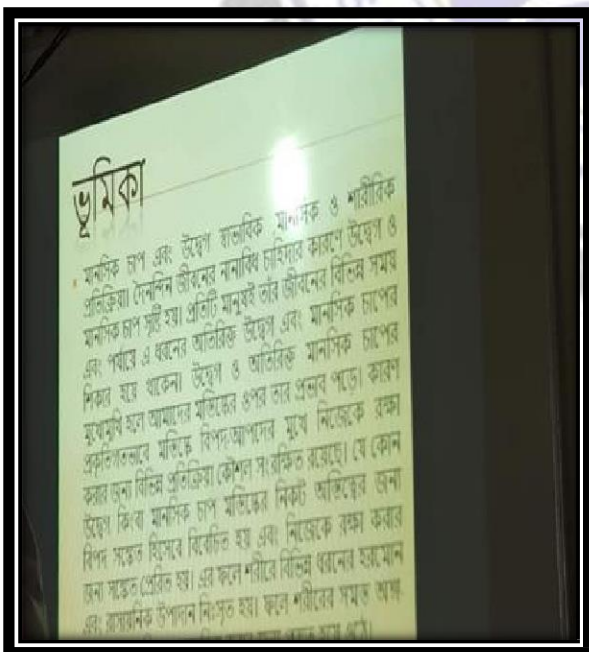 ভূমিকা
মানসিক চাপ এবং উদ্বেগ স্বাভাবিক মানসিক ও শারীরিক
প্রতিক্রিয়া। দৈনন্দিন জীবনের নানাবিধ চাহিদার কারণে উদ্বেগ ও
মানসিক চাপ সৃষ্টি হয়। প্রতিটি মানুষই তাঁর জীবনের বিভিন্ন সময়
এবং পর্যায়ে এ ধরনের অতিরিক্ত উদ্বেগ এবং মানসিক চাপের
শিকার হয়ে থাকেন। উদ্বেগ ও অতিরিক্ত মানসিক চাপের
মুখোমুখি হলে আমাদের মস্তিষ্কের ওপর তার প্রভাব পড়ে। কারণ
প্রকৃতিগতভাবে মস্তিষ্কে বিপদ-আপদের মুখে নিজেকে রক্ষা
করার জন্য বিভিন্ন প্রতিক্রিয়া কৌশল সংরক্ষিত রয়েছে। যে কোন
উদ্বেগ কিংবা মানসিক চাপ মস্তিষ্কের নিকট অস্তিত্বের জন্য
বিপদ সঙ্কেত হিসেবে বিবেচিত হয় এবং নিজেকে রক্ষা করার
জন্য সঙ্কেত প্রেরিত হয়। এর ফলে শরীরে বিভিন্ন ধরনের হরমোন
এবং রাসায়নিক উপাদান নিঃসৃত হয়। ফলে শরীরের সমস্ত অঙ্গ-